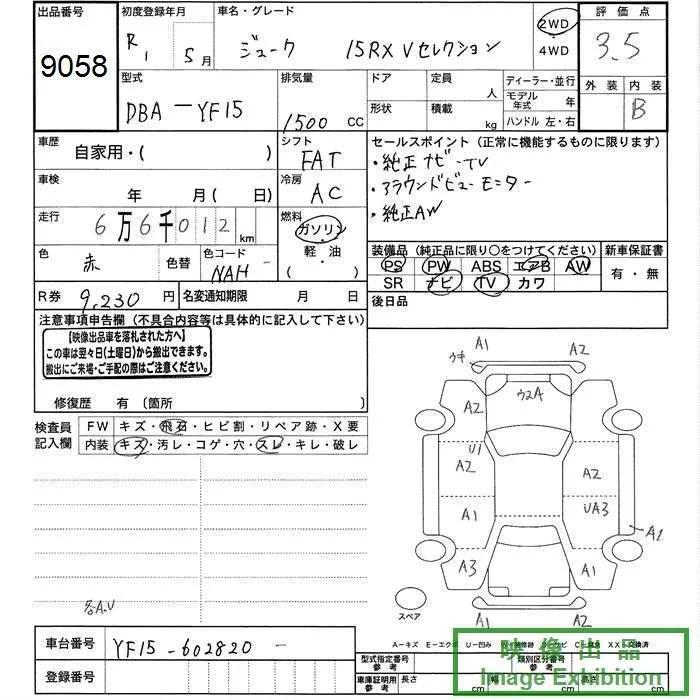 出品番号 初度登録年月 車名・グレード 評価点
9058 R1 5月 ジューク 15RX Vセレクション 2WD・4WD 3.5
型式 排気量 ドア 定員 ディーラー・並行 外装 内装
DBA-YF15 1500 CC 形状 積載 人 kg モデル年式 年 ハンドル 左・右 B
車歴 自家用・( ) シフト FAT セールスポイント(正常に機能するものに限ります)
・純正ナビ-TV
車検 年 月(日) 冷房 AC ・アラウンドビューモニター
・純正AW
走行 6万6千012km 燃料 ガソリン・軽・油( ) 装備品(純正品に限り○をつけてください) 新車保証書
色 赤 色替 色コード NAH- PS PW ABS エアB AW 有・無
SR ナビ TV カワ
R券 9,230円 名変通知期限 月 日 後日品
注意事項申告欄(不具合内容等は具体的に記入して下さい)
【映像出品車を落札された方へ】
この車は翌々日(土曜日)から搬出できます。
搬出にご来場・ご手配の際はご注意ください。
修復歴 有(箇所
検査員記入欄 FW キズ・飛石・ヒビ割・リペア跡・X要
内装 キズ・汚レ・コゲ・穴・スレ・キレ・破レ
A1 A2
ウキ
A2 ウ2A A2
U1
A2 A2
A1 UA3
A1
A3 A1
A1 A2
スペア
各A.U
A-キズ E-エクボ U-凹み
車台番号 YF15-602820-
登録番号
型式指定番号 参考 類別区分番号 参考
車庫証明用 参考 長さ cm 幅 cm 高さ cm
映像出品
Image Exhibition